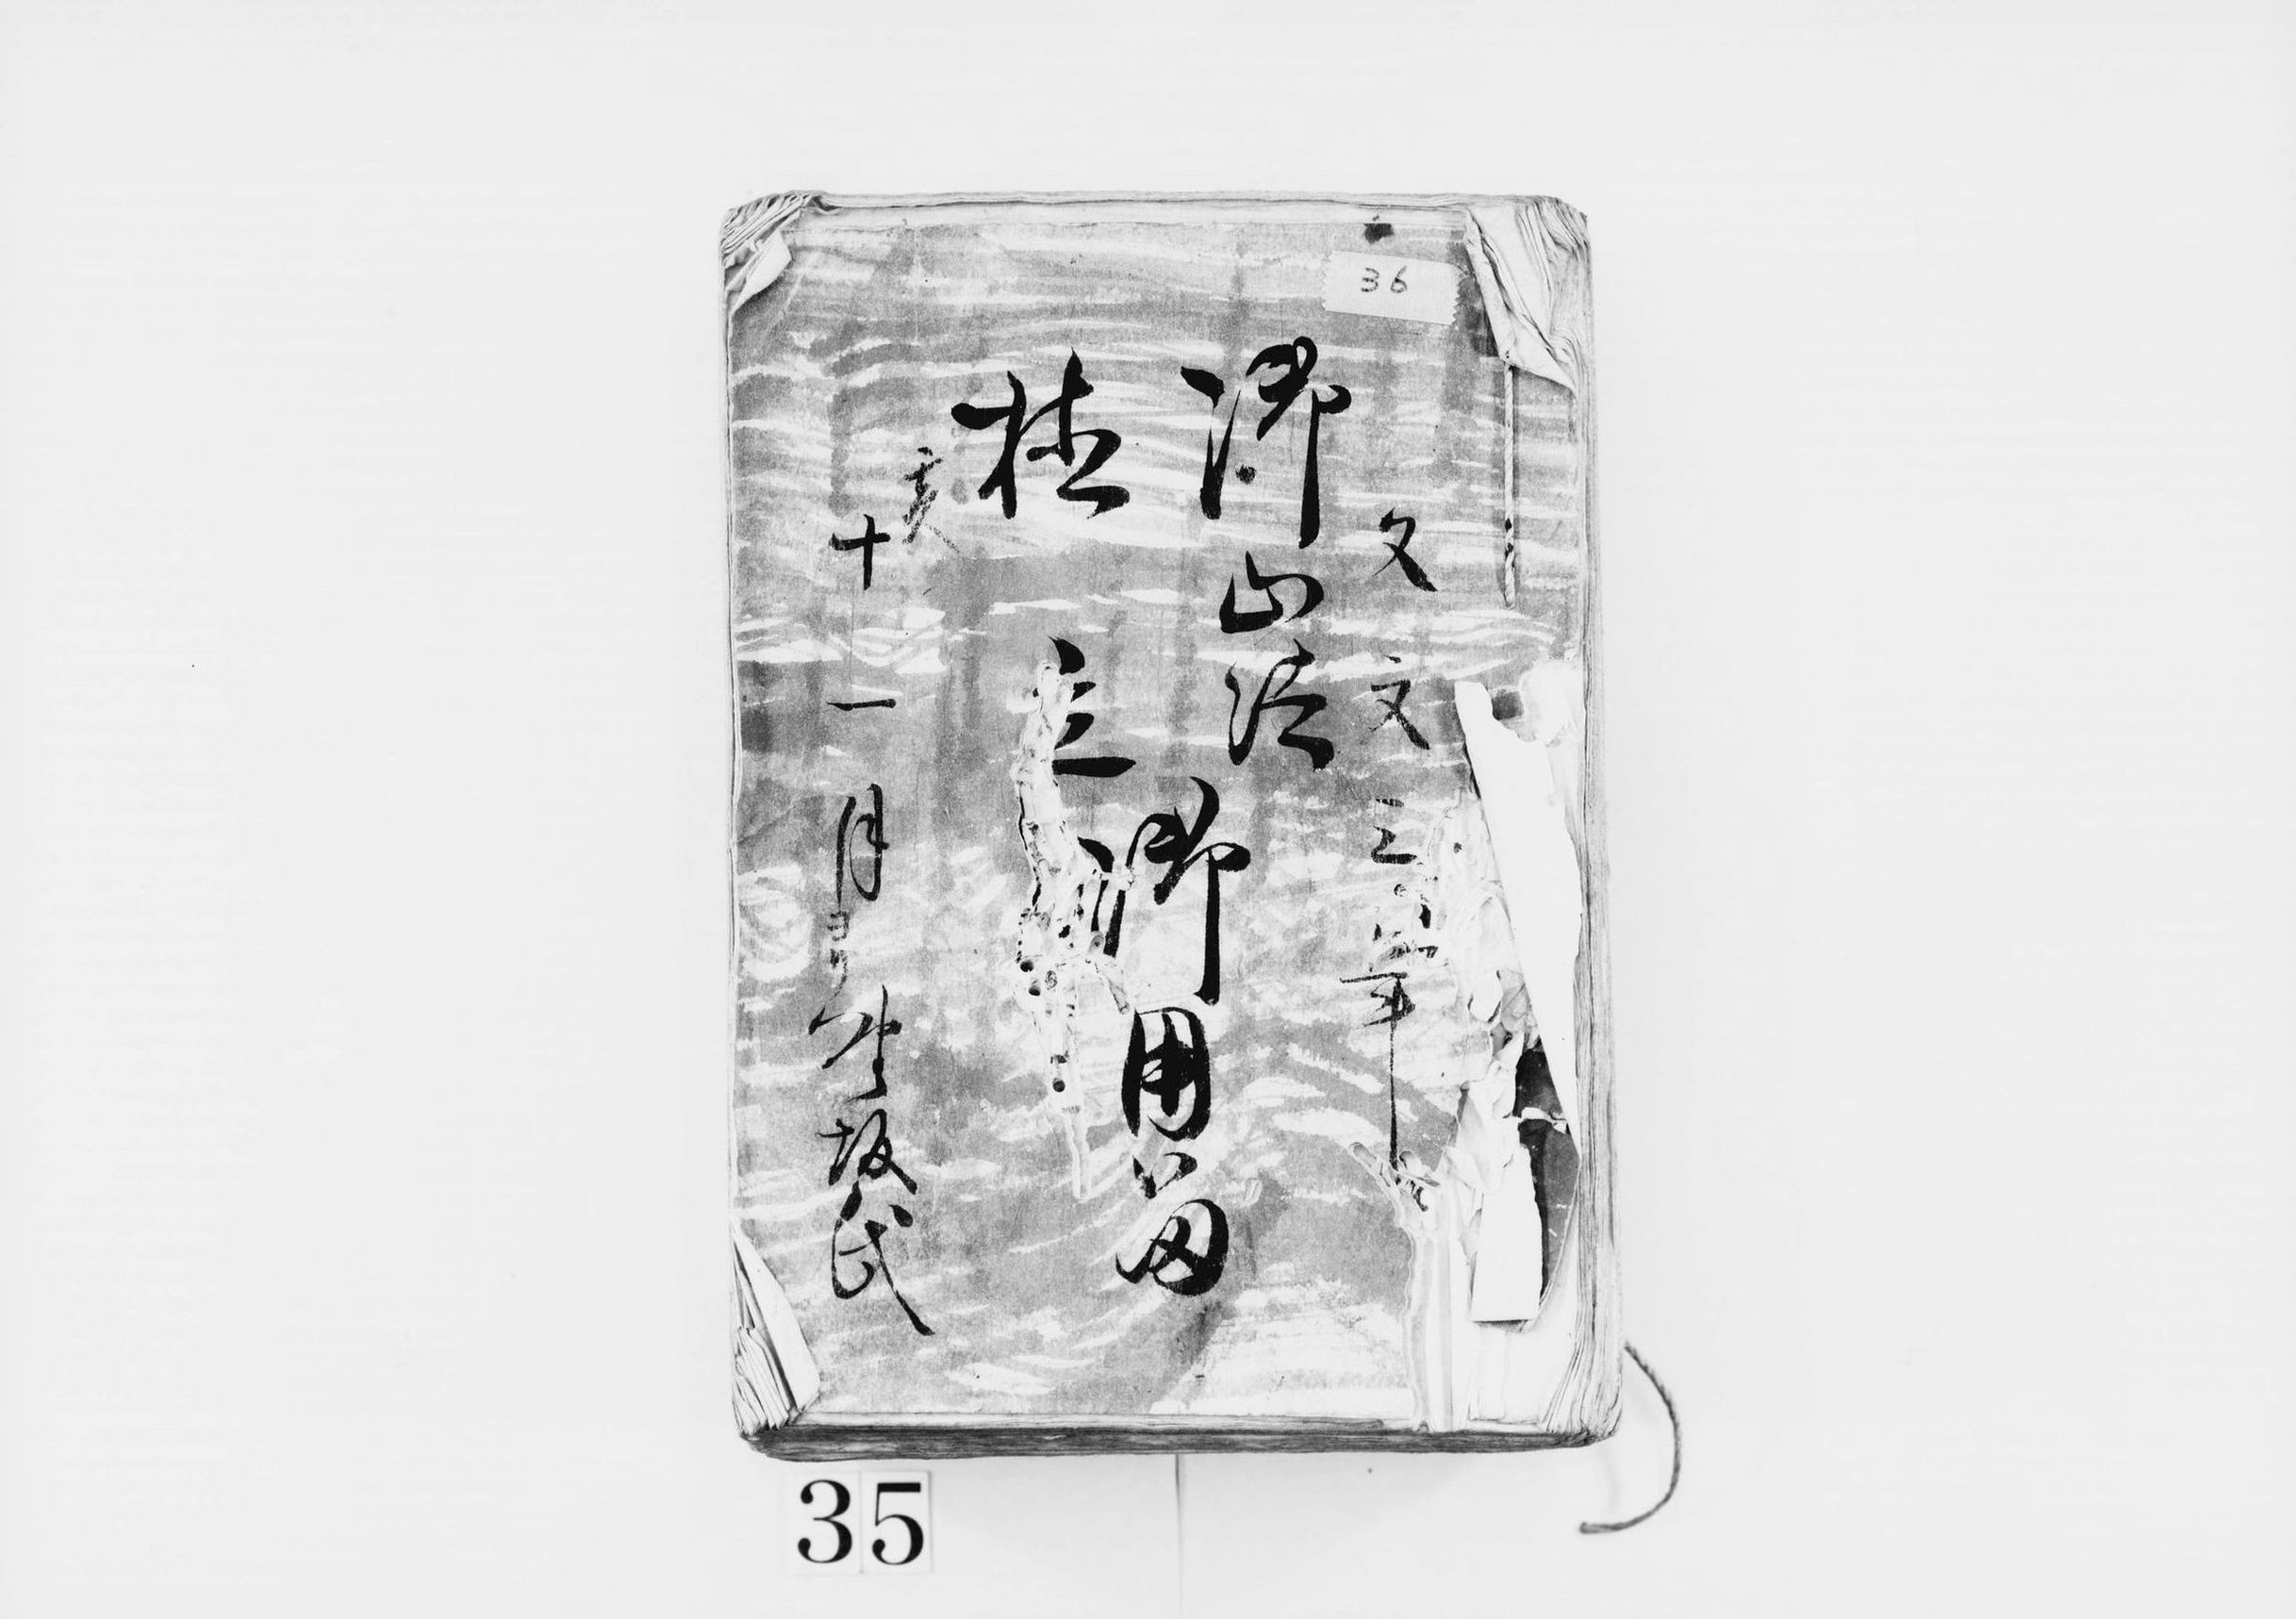 36
文久三年
御山法
植立
御用留
亥
十一月ヨリ
生坂氏
35